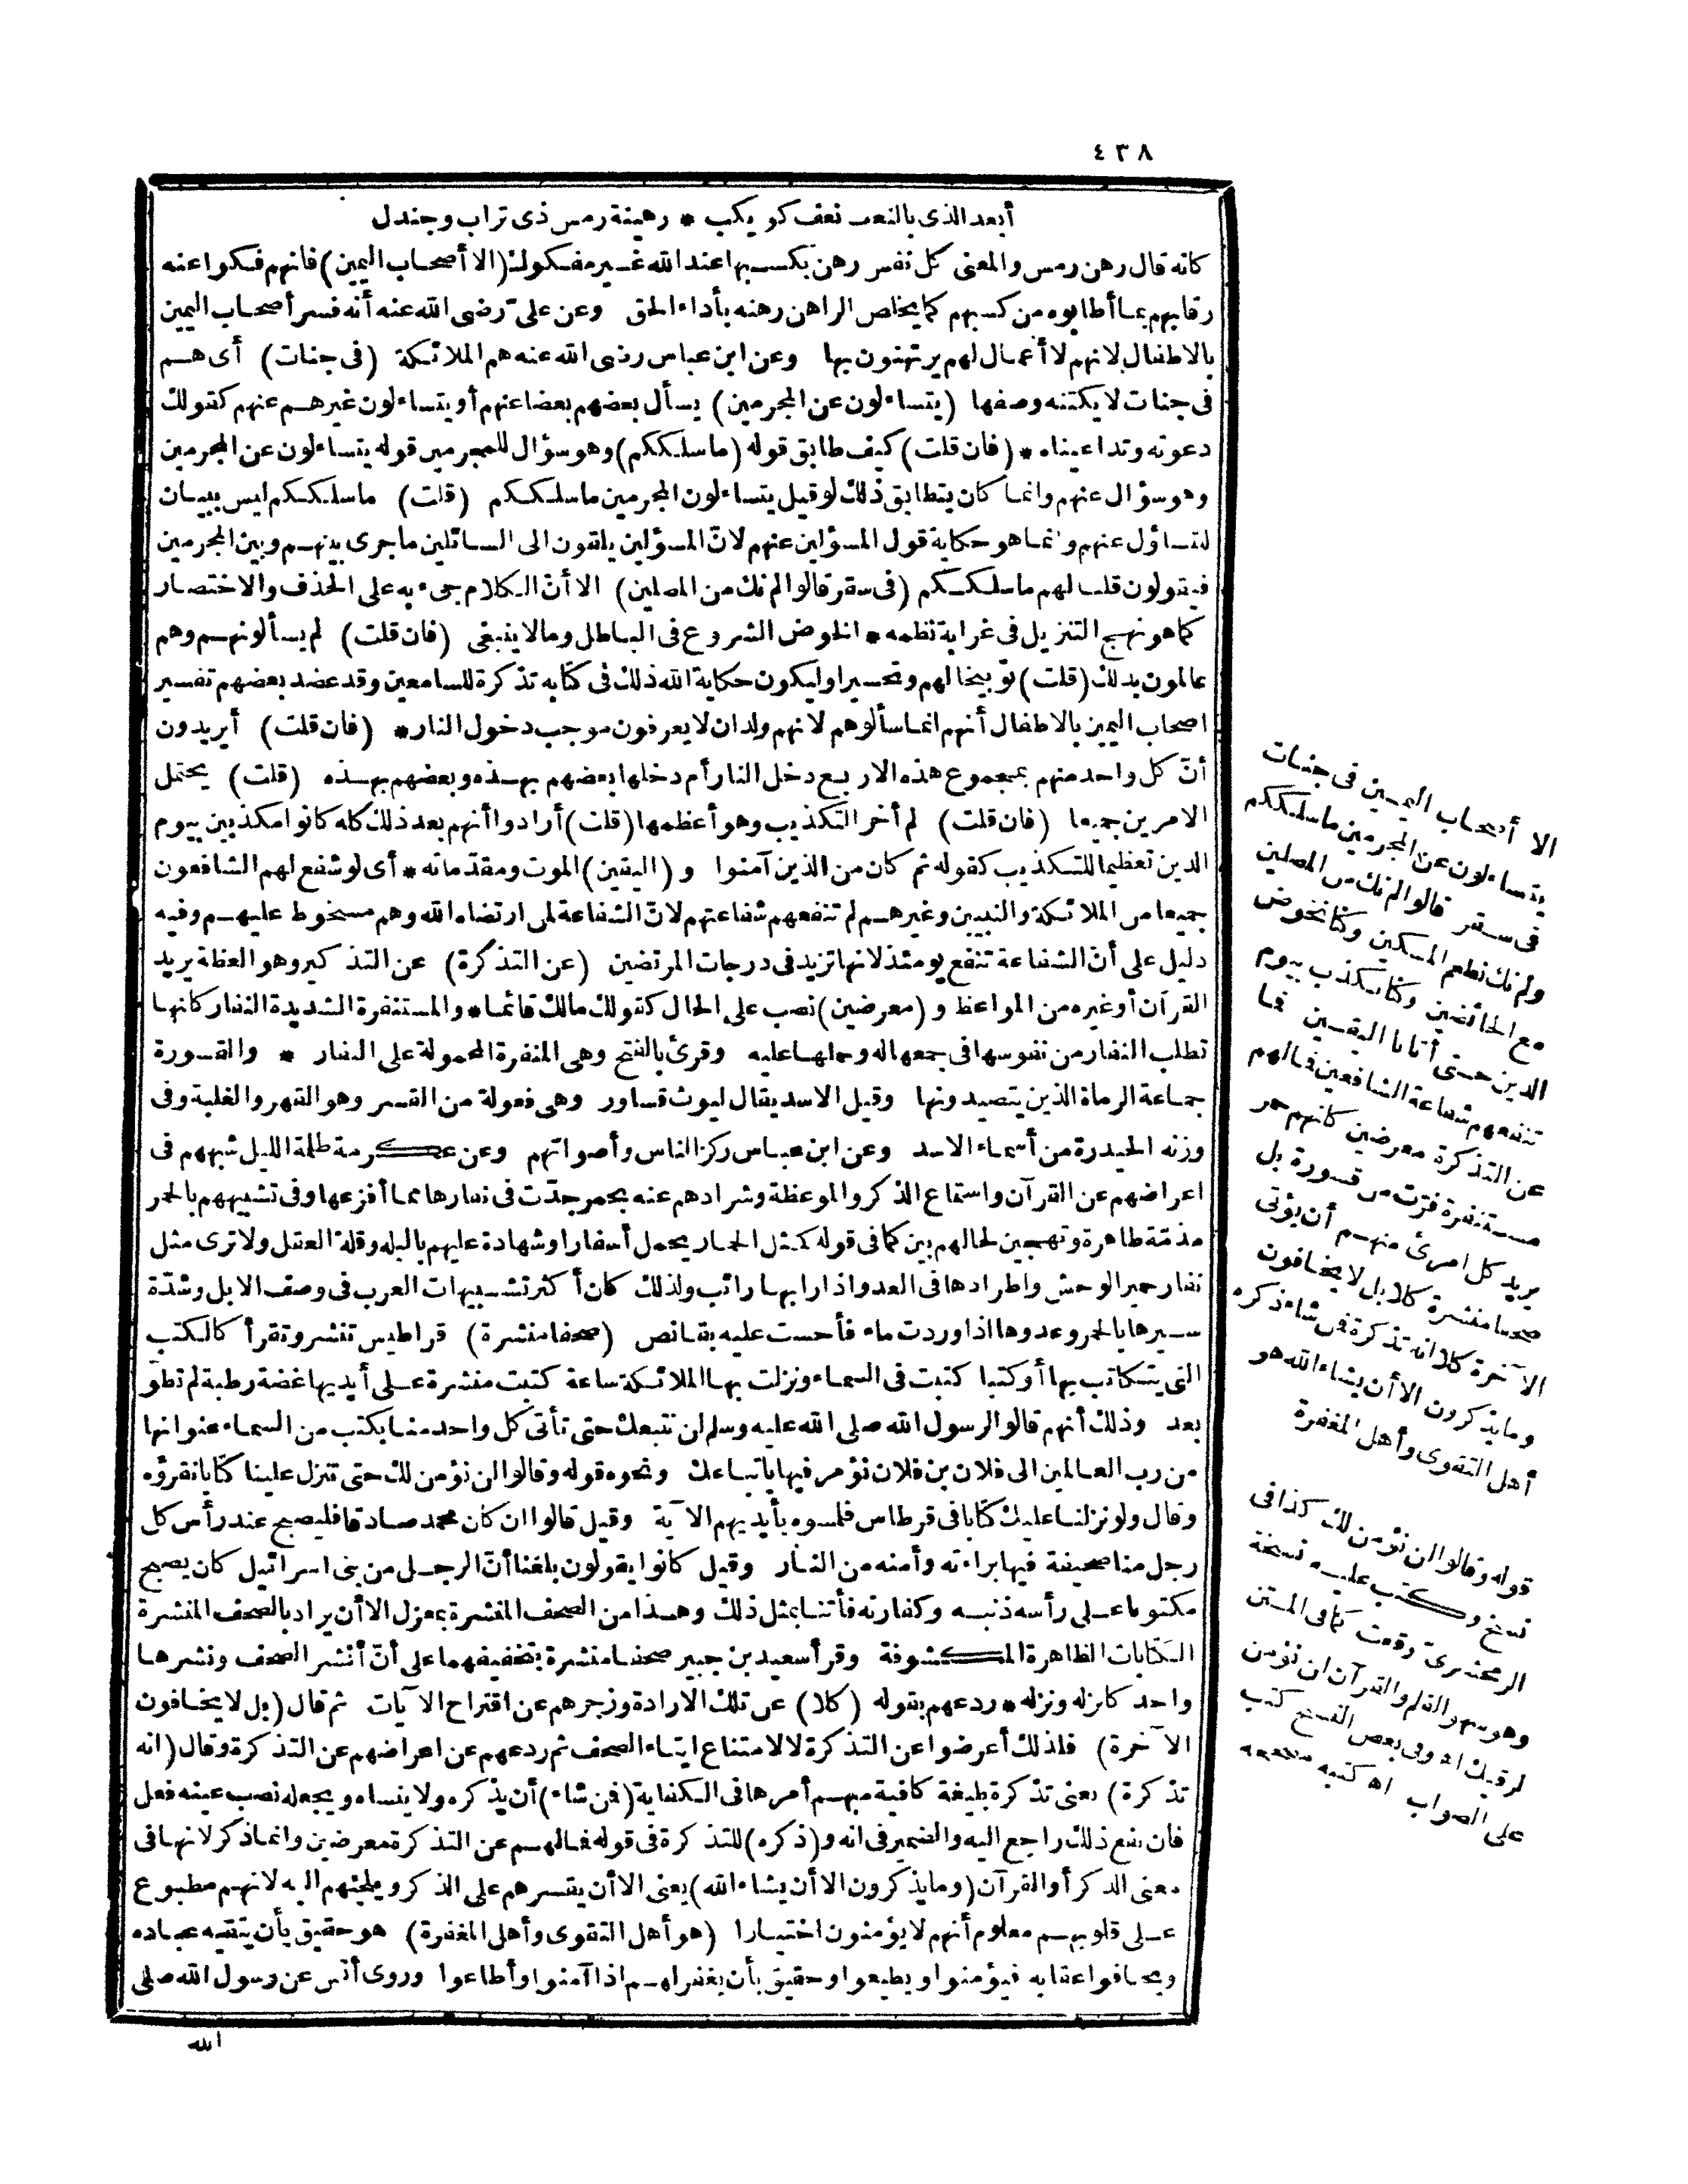 ٤٣٨
أبعد الذى بالنعف نعف كويكب * رهينة رمس ذى تراب وجندل
كانه قال رهن رمس والمعنى كل نفس رهن بكسبها عند الله غير مفكوك (الا أصحاب اليمين) فانهم فكوا عنه
رقابهم بما أطابوه من كسبهم كما يخلص الراهن رهنه بأداء الحق وعن علىّ رضى الله عنه أنه فسر أصحاب اليمين
بالاطفال لانهم لا أعمال لهم يرتهنون بها وعن ابن عباس رضى الله عنه هم الملائكة (فى جنات) أى هم
فى جنات لا يكتنه وصفها (يتساءلون عن المجرمين) يسأل بعضهم بعضا عنهم أو يتساءلون غيرهم عنهم كقولك
دعوته وتداعيناه * (فان قلت) كيف طابق قوله (ما سلككم) وهو سؤال للمجرمين قوله يتساءلون عن المجرمين
وهو سؤال عنهم وانما كان يتطابق ذلك لو قيل يتساءلون المجرمين ما سلككم (قلت) ما سلككم ليس ببيان
للتساؤل عنهم وانما هو حكاية قول المسؤلين عنهم لانّ المسؤلين يلقون الى السائلين ما جرى بينهم وبين المجرمين
فيقولون قلنا لهم ما سلككم (فى سقر قالوا لم نك من المصلين) الا أنّ الكلام جىء به على الحذف والاختصار
كما هو نهج التنزيل فى غرابة نظمه * الخوض الشروع فى الباطل وما لا ينبغى (فان قلت) لم يسألونهم وهم
عالمون بذلك (قلت) توبيخا لهم وتحسيرا وليكون حكاية الله ذلك فى كتابه تذكرة للسامعين وقد عضد بعضهم تفسير
اصحاب اليمين بالاطفال أنهم انما سألوهم لانهم ولدان لا يعرفون موجب دخول النار * (فان قلت) أيريدون
أنّ كل واحد منهم بمجموع هذه الاربع دخل النار أم دخلها بعضهم بهذه وبعضهم بهذه (قلت) يحتمل
الامرين جميعا (فان قلت) لم أخر التكذيب وهو أعظمها (قلت) أرادوا أنهم بعد ذلك كله كانوا مكذبين بيوم
الدين تعظيما للتكذيب كقوله ثم كان من الذين آمنوا و (اليقين) الموت ومقدّماته * أى لو شفع لهم الشافعون
جميعا من الملائكة والنبيين وغيرهم لم تنفعهم شفاعتهم لانّ الشفاعة لمن ارتضاه الله وهم مسخوط عليهم وفيه
دليل على أنّ الشفاعة تنفع يومئذ لانها تزيد فى درجات المرتضين (عن التذكرة) عن التذكير وهو العظة يريد
القرآن أو غيره من المواعظ و (معرضين) نصب على الحال كقولك مالك قائما * والمستنفرة الشديدة النفار كانها
تطلب النفار من نفوسها فى جمعها له وحملها عليه وقرئ بالفتح وهى المنفرة المحمولة على النفار * والقسورة
جماعة الرماة الذين يتصيدونها وقيل الاسد يقال ليوث قساور وهى فعولة من القسر وهو القهر والغلبة وفى
وزنه الحيدرة من أسماء الاسد وعن ابن عباس ركز الناس وأصواتهم وعن عكرمة ظلمة الليل شبههم فى
اعراضهم عن القرآن واستماع الذكر والموعظة وشرادهم عنه بحمر جدّت فى نفارها مما أفزعها وفى تشبيههم بالحمر
مذمّة ظاهرة وتهجين لحالهم بين كما فى قوله كمثل الحمار يحمل أسفارا وشهادة عليهم بالبله وقلة العقل ولا ترى مثل
نفار حمير الوحش واطرادها فى العدو اذا رابها رائب ولذلك كان أكثر تشبيهات العرب فى وصف الابل وشدّة
سيرها بالحمر وعدوها اذا وردت ماء فأحست عليه بقانص (صحفا منشرة) قراطيس تنشر وتقرأ كالكتب
التى يتكاتب بها أو كتبا كتبت فى السماء ونزلت بها الملائكة ساعة كتبت منشرة على أيديها غضة رطبة لم تطو
بعد وذلك أنهم قالوا لرسول الله صلى الله عليه وسلم لن نتبعك حتى تأتى كل واحد منا بكتب من السماء عنوانها
من رب العالمين الى فلان بن فلان نؤمر فيها باتباعك ونحوه قوله وقالوا لن نؤمن لك حتى تنزل علينا كتابا نقرؤه
وقال ولو نزلنا عليك كتابا فى قرطاس فلمسوه بأيديهم الآية وقيل قالوا ان كان محمد صادقا فليصبح عند رأس كل
رجل منا صحيفة فيها براءته وأمنه من النار وقيل كانوا يقولون بلغنا أنّ الرجل من بنى اسرائيل كان يصبح
مكتوبا على رأسه ذنبه وكفارته فأتنا بمثل ذلك وهذا من الصحف المنشرة بمعزل الا أن يراد بالصحف المنشرة
الكتابات الظاهرة المكشوفة وقرأ سعيد بن جبير صحفا منشرة بتخفيفهما على أنّ أنشر الصحف ونشرها
واحد كانزله ونزله * ردعهم بقوله (كلا) عن تلك الارادة وزجرهم عن اقتراح الآيات ثم قال (بل لا يخافون
الآخرة) فلذلك أعرضوا عن التذكرة لا لامتناع ايتاء الصحف ثم ردعهم عن اعراضهم عن التذكرة وقال (انه
تذكرة) يعنى تذكرة بليغة كافية مبهم أمرها فى الكفاية (فمن شاء) أن يذكره ولا ينساه ويجعله نصب عينه فعل
فان نفع ذلك راجع اليه والضمير فى انه و (ذكره) للتذكرة فى قوله فما لهم عن التذكرة معرضين وانما ذكر لانها فى
معنى الذكر أو القرآن (وما يذكرون الا أن يشاء الله) يعنى الا أن يقسرهم على الذكر ويلجئهم اليه لانهم مطبوع
على قلوبهم معلوم أنهم لا يؤمنون اختيارا (هو أهل التقوى وأهل المغفرة) هو حقيق بأن يتقيه عباده
ويخافوا عقابه فيؤمنوا ويطيعوا وحقيق بأن يغفر لهم اذا آمنوا وأطاعوا وروى أنس عن رسول الله صلى
الله
الا أصحاب اليمين فى جنات
يتساءلون عن المجرمين ما سلككم
فى سقر قالوا لم نك من المصلين
ولم نك نطعم المسكين وكنا نخوض
مع الخائضين وكنا نكذب بيوم
الدين حتى أتانا اليقين فما
تنفعهم شفاعة الشافعين فما لهم
عن التذكرة معرضين كانهم حمر
مستنفرة فرّت من قسورة بل
يريد كل امرئ منهم أن يؤتى
صحفا منشرة كلا بل لا يخافون
الآخرة كلا انه تذكرة فمن شاء ذكره
وما يذكرون الا أن يشاء الله هو
أهل التقوى وأهل المغفرة
قوله وقالوا لن نؤمن لك كذا فى
نسخ وكتب عليه نسخة
الزمخشرىّ وقعت كما فى المتن
وهو سهو القلم والقرآن لن نؤمن
لرقيك اه وفى بعض النسخ كتب
على الصواب اه كتبه مصححه